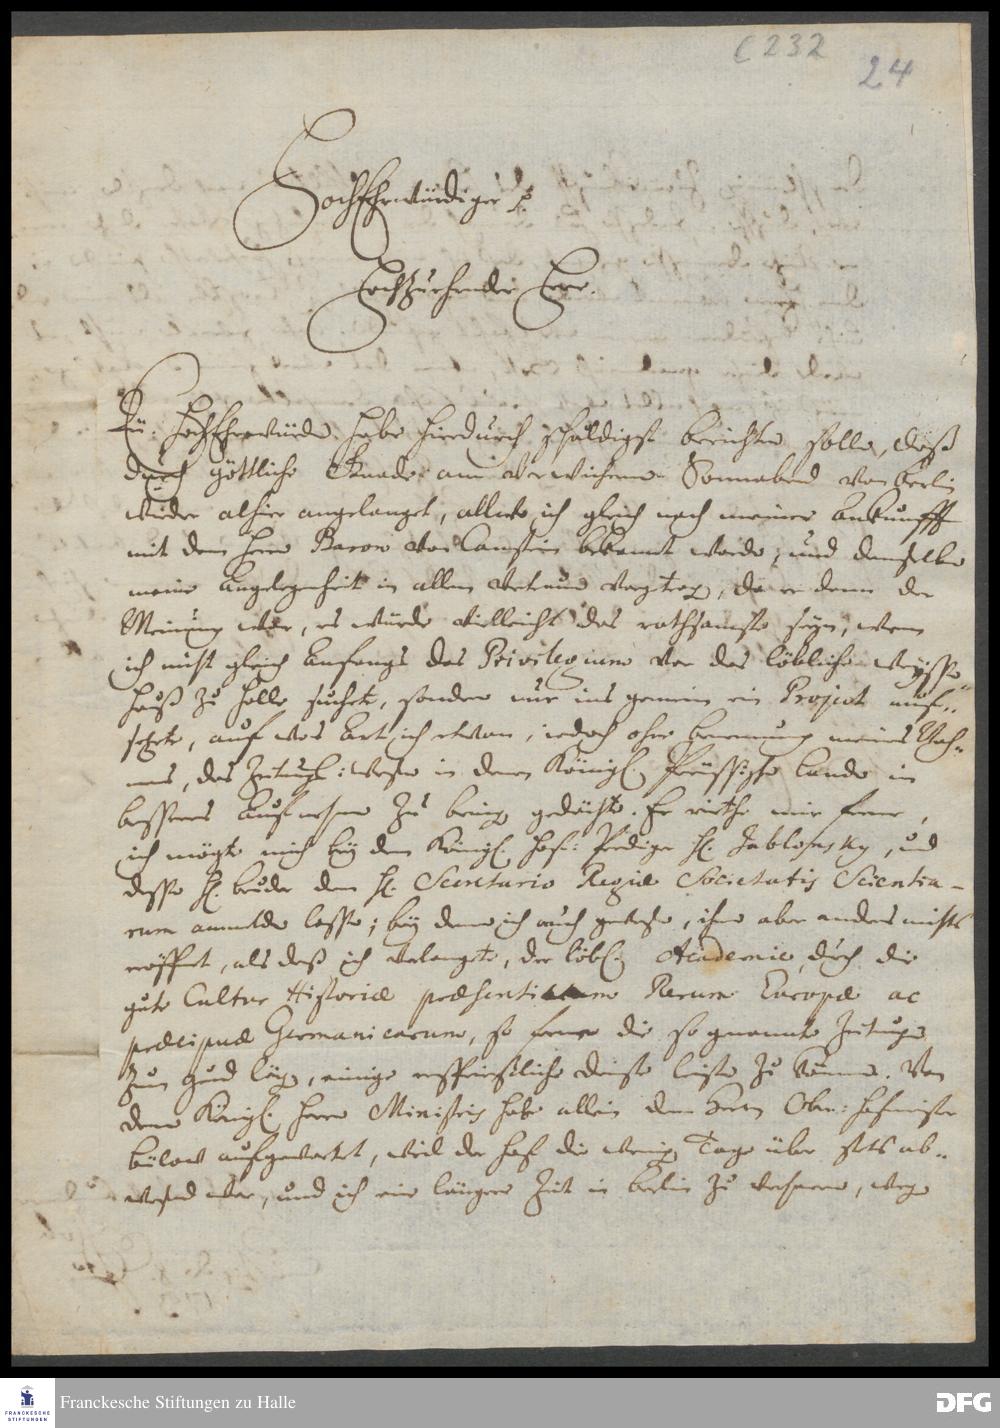 C 232
24
HochEhrwürdiger p.
Hochzuehrender Herr.
Eu: HochEhrwürde habe hierdurch schuldigst berichten sollen, daß
durch göttliche Gnade am verwichenen Sonnabend von Berlin
wieder alhier angelanget, allwo ich gleich nach meiner Ankunfft
mit dem Herrn Baron von Canstein bekannt worden, und demselben
meine Angelegenheit in allem Vertrauen vorgetragen, da er denn der
Meinung war, es würde vielleicht das rathsamste seyn, wenn
ich nicht gleich Anfangs das Privilegium vor das löbliche Waysen-
hauß zu Halle suchete, sondern nur ins gemein ein Project auf-
setzete, auf was Art ich etwan, iedoch ohne Benennung meines Nah-
mens, das Zeitungs-Wesen in denen Königl. Preussischen Landen in
besseres Aufnehmen zu bringen gedächte. Er riethe mir ferner,
ich mögte mich bey dem Königl. Hof-Prediger H. Jablonsky, und
dessen H. Bruder dem H. Secretario Regiæ Societatis Scientia-
rum anmelden lassen; bey denen ich auch gewesen, ihnen aber anders nichts
eröffnet, als daß ich verlangete, der löbl. Academie, durch die
gute Cultur Historiæ præsentis Rerum Europæ ac
præcipuæ Germanicarum, so ferner die so genannten Zeitungen
zum Grund lägen, einige ersprießliche Dienste leisten zu können. Von
denen Königl. Herren Ministris habe allein dem Herrn Ober-Hofmeister
Bülow aufgewartet, weil der Hof die wenigen Tage über stets ab-
wesend war, und ich eine längere Zeit in Berlin zu verharren, wegen
Franckesche Stiftungen zu Halle
FRANCKESCHE
STIFTUNGEN
DFG